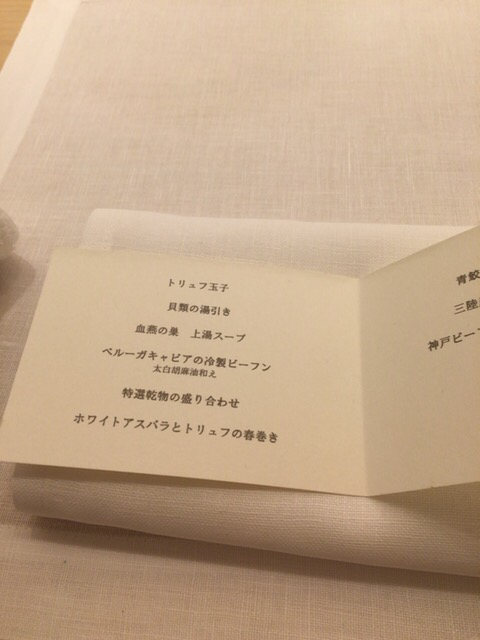 トリュフ玉子
貝類の湯引き
血燕の巣　上湯スープ
ベルーガキャビアの冷製ビーフン
太白胡麻油和え
特選乾物の盛り合わせ
ホワイトアスパラとトリュフの春巻き
青鮫
三陸
神戸ビー